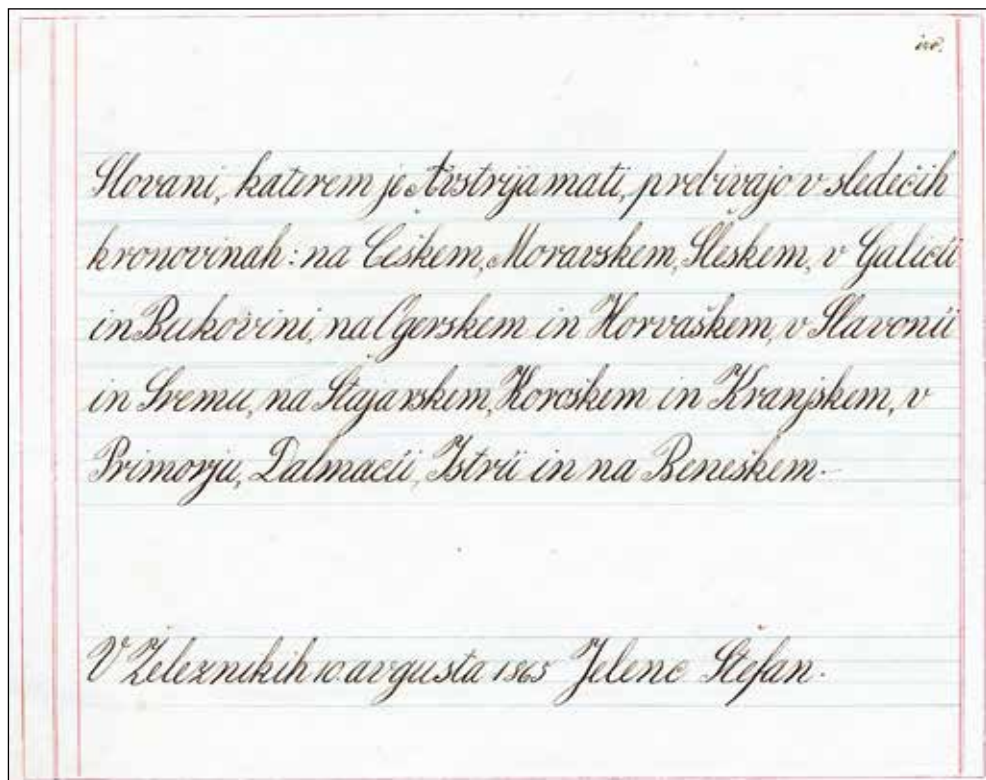 Slovani, katerem je Avstrija mati, prebivajo v sledečih
kronovinah: na Češkem, Moravskem, Šleskem, v Galicii
in Bukovini, na Ogerskem in Horvaškem, v Slavonii
in Sremu, na Štajarskem, Koroškem in Kranjskem, v
Primorju, Dalmacii, Istrii in na Beneškem.
V Železnikih 10. avgusta 1865 Jelenc Štefan.